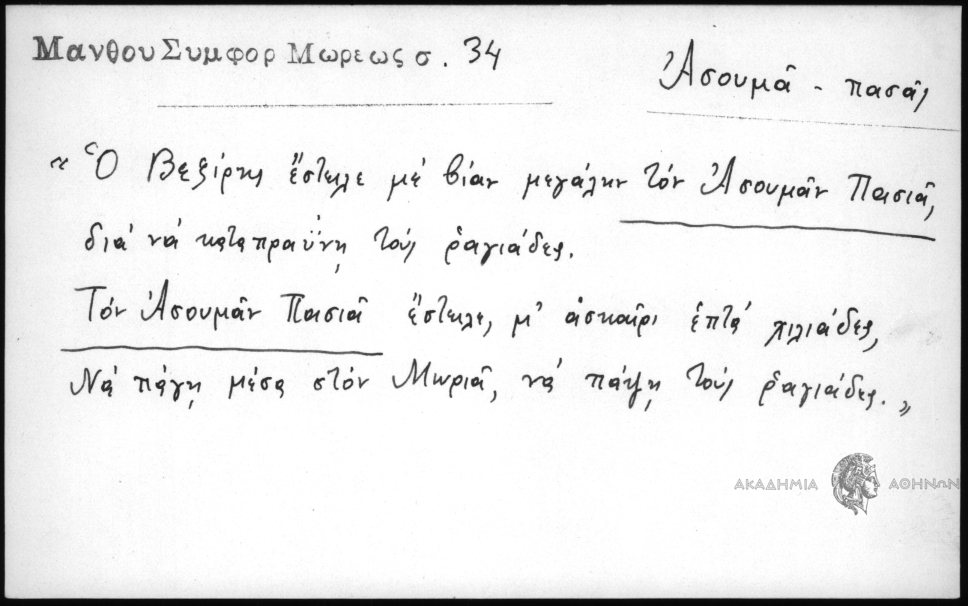 Μανθου Συμφορ Μωρεως σ. 34
Ἀσουμᾶ - πασᾶς
« Ὁ Βεζίρης ἔστειλε μέ βίαν μεγάλην τόν Ἀσουμᾶν Πασιᾶ,
διά νά καταπραΰνῃ τούς ῥαγιάδες.
Τόν Ἀσουμᾶν Πασιᾶ ἔστειλε, μ' ἀσκαῖρι ἑπτά χιλιάδες,
Νά πάγῃ μέσα στόν Μωριᾶ, νά πάψῃ τούς ῥαγιάδες. »
ΑΚΑΔΗΜΙΑ ΑΘΗΝΩΝ